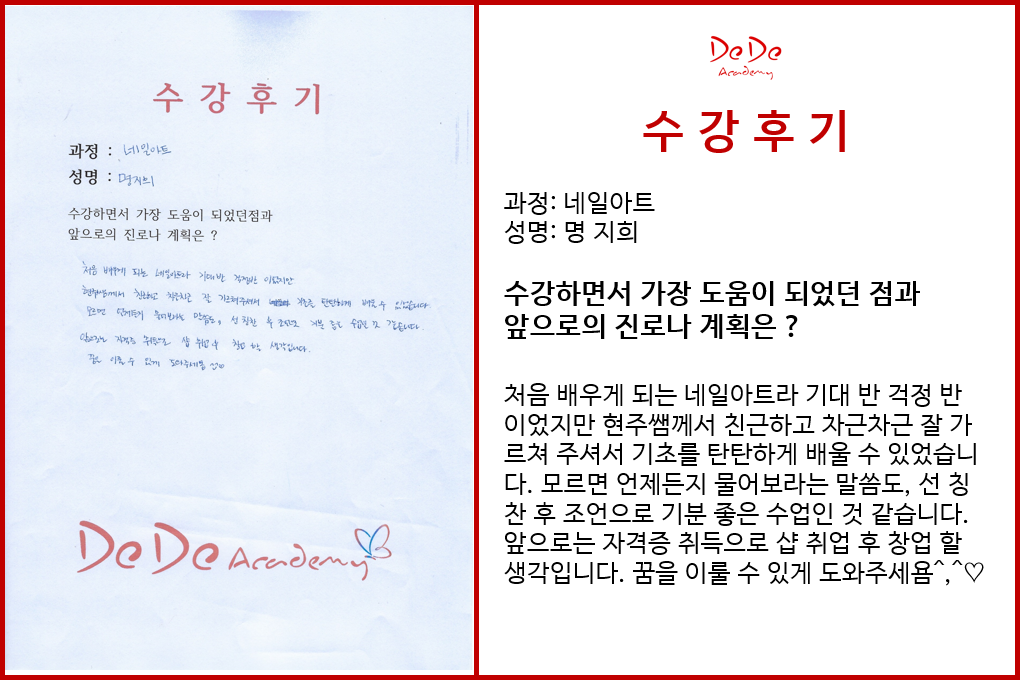 수 강 후 기
과정 : 네일아트
성명 : 명지희
수강하면서 가장 도움이 되었던점과
앞으로의 진로나 계획은 ?
처음 배우게 되는 네일아트라 기대반 걱정반 이었지만
현주쌤께서 친근하고 차근차근 잘 가르쳐주셔서 기초를 탄탄하게 배울 수 있었습니다.
모르면 언제든지 물어보라는 말씀도, 선 칭찬 후 조언으로 기분 좋은 수업인 것 같습니다.
앞으로는 자격증 취득으로 샵 취업 후 창업 할 생각입니다.
꿈을 이룰 수 있게 도와주세욤
DeDe Academy
DeDe
Academy
수 강 후 기
과정: 네일아트
성명: 명 지희
수강하면서 가장 도움이 되었던 점과
앞으로의 진로나 계획은 ?
처음 배우게 되는 네일아트라 기대 반 걱정 반
이었지만 현주쌤께서 친근하고 차근차근 잘 가
르쳐 주셔서 기초를 탄탄하게 배울 수 있었습니
다. 모르면 언제든지 물어보라는 말씀도, 선 칭
찬 후 조언으로 기분 좋은 수업인 것 같습니다.
앞으로는 자격증 취득으로 샵 취업 후 창업 할
생각입니다. 꿈을 이룰 수 있게 도와주세욤^,^♡